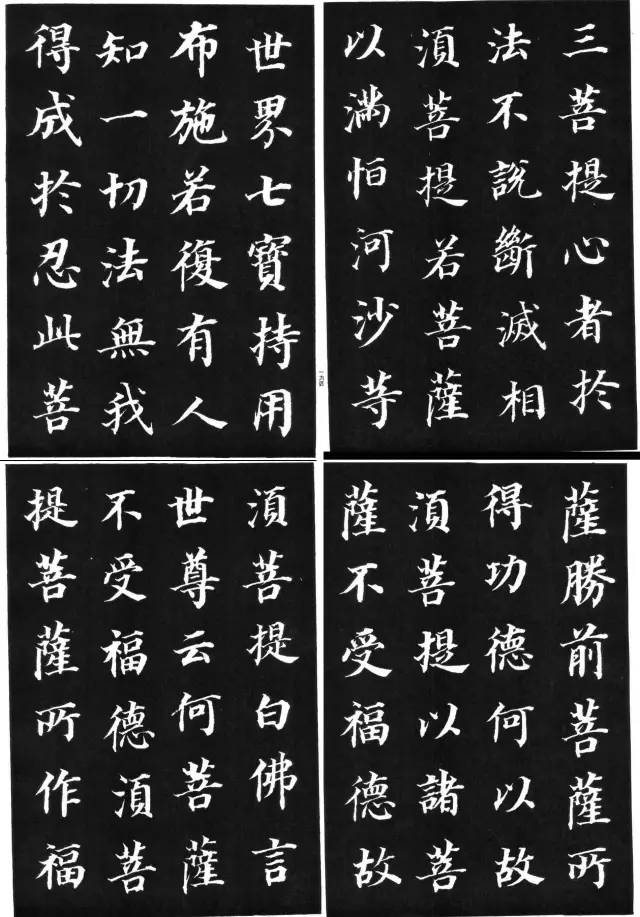 三菩提心者於
法不說斷滅相
湏菩提若菩薩
以滿恒河沙等
世界七寶持用
布施若復有人
知一切法無我
得成於忍此菩
薩勝前菩薩所
得功德何以故
湏菩提以諸菩
薩不受福德故
湏菩提白佛言
世尊云何菩薩
不受福德湏菩
提菩薩所作福